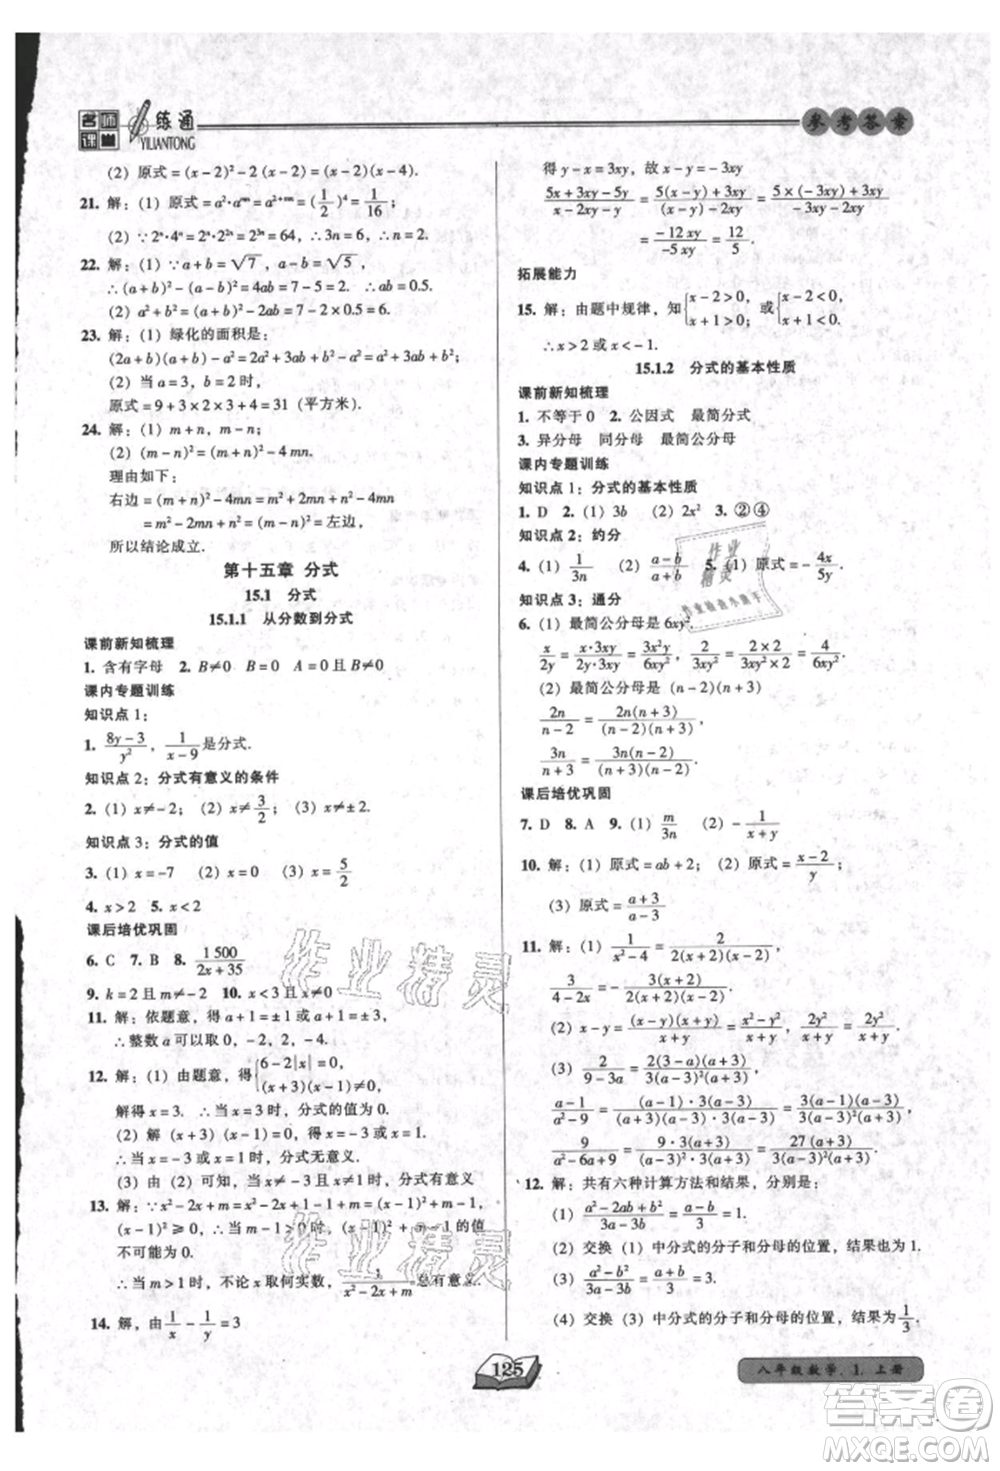 名师课堂 一练通
YILIANTONG
参考答案
(2) 原式=(x-2)²-2(x-2)=(x-2)(x-4).
21. 解:(1) 原式=a²·aᵐⁿ=a²⁺ᵐⁿ=(1/2)⁴=1/16;
(2) ∵2ⁿ·4ⁿ=2ⁿ·2²ⁿ=2³ⁿ=64, ∴3n=6, ∴n=2.
22. 解:(1) ∵a+b=√7, a-b=√5,
∴(a+b)²-(a-b)²=4ab=7-5=2, ∴ab=0.5.
(2) a²+b²=(a+b)²-2ab=7-2×0.5=6.
23. 解:(1) 绿化的面积是:
(2a+b)(a+b)-a²=2a²+3ab+b²-a²=a²+3ab+b²;
(2) 当 a=3, b=2时,
原式=9+3×2×3+4=31 (平方米).
24. 解:(1) m+n, m-n;
(2) (m-n)²=(m+n)²-4mn.
理由如下:
右边=(m+n)²-4mn=m²+2mn+n²-4mn
=m²-2mn+n²=(m-n)²=左边,
所以结论成立.
第十五章 分式
15.1 分式
15.1.1 从分数到分式
课前新知梳理
1. 含有字母 2. B≠0 B=0 A=0且B≠0
课内专题训练
知识点 1:
1. (8y-3)/y², 1/(x-9)是分式.
知识点 2:分式有意义的条件
2. (1) x≠-2; (2) x≠3/2; (3) x≠±2.
知识点 3:分式的值
3. (1) x=-7 (2) x=0 (3) x=5/2
4. x>2 5. x<2
课后培优巩固
6. C 7. B 8. 1500/(2x+35)
9. k=2且m≠-2 10. x<3且x≠0
11. 解:依题意,得a+1=±1或a+1=±3,
∴整数a可以取0, -2, 2, -4.
12. 解:(1) 由题意,得{6-2|x|=0, (x+3)(x-1)≠0,
解得x=3. ∴当x=3时,分式的值为0.
(2) 解 (x+3)(x-1)=0,得x=-3或x=1.
∴当x=-3或x=1时,分式无意义.
(3) 由(2)可知,当x≠-3且x≠1时,分式有意义
13. 解:∵x²-2x+m=x²-2x+1-1+m=(x-1)²+m-1,
(x-1)²≥0, ∴当m-1>0时, (x-1)²+m-1的值
不可能为0.
∴当m>1时,不论x取何实数, 1/(x²-2x+m)总有意义.
14. 解,由1/x-1/y=3
得y-x=3xy, 故x-y=-3xy
(5x+3xy-5y)/(x-xy-y)=(5(x-y)+3xy)/((x-y)-xy)=(5×(-3xy)+3xy)/(-3xy-2xy)
=(-12xy)/(-5xy)=12/5.
拓展能力
15. 解:由题中规律,知{x-2>0, x+1>0; 或{x-2<0, x+1<0.
∴x>2或x<-1.
15.1.2 分式的基本性质
课前新知梳理
1. 不等于0 2. 公因式 最简分式
3. 异分母 同分母 最简公分母
课内专题训练
知识点 1:分式的基本性质
1. D 2. (1) 3b (2) 2x² 3. ②④
知识点 2:约分
4. (1) 1/3n (2) (a-b)/(a+b) 5. (1) 原式=-4x/5y.
知识点 3:通分
6. (1) 最简公分母是6xy²,
x/2y=(x·3xy)/(2y·3xy)=3x²y/6xy², 2/3xy²=(2×2)/(3xy²×2)=4/6xy².
(2) 最简公分母是 (n-2)(n+3)
2n/(n-2)=2n(n+3)/(n-2)(n+3),
3n/(n+3)=3n(n-2)/(n+3)(n-2).
课后培优巩固
7. D 8. A 9. (1) m/3n (2) -1/(x+y)
10. 解:(1) 原式=ab+2; (2) 原式=(x-2)/(x+y);
(3) 原式=(a+3)/(a-3)
11. 解:(1) 1/(x²-4)=2/(2(x+2)(x-2)),
3/(4-2x)=-3(x+2)/(2(x+2)(x-2)).
(2) x-y=(x-y)(x+y)/(x+y)=(x²-y²)/(x+y), 2y²/(x+y)=2y²/(x+y).
(3) 2/(9-3a)=-2(a+3)(a-3)/(3(a+3)(a-3)²),
(a-1)/(a²-9)=(a-1)·3(a-3)/((a+3)(a-3)·3(a-3))=3(a-1)(a-3)/(3(a+3)(a-3)²),
9/(a²-6a+9)=9·3(a+3)/((a-3)²·3(a+3))=27(a+3)/(3(a+3)(a-3)²).
12. 解:共有六种计算方法和结果,分别是:
(1) (a²-2ab+b²)/(a²-b²)=(a-b)/(a+b)=1/3.
(2) 交换 (1) 中分式的分子和分母的位置,结果也为1.
(3) (a²-b²)/(3a-3b)=(a+b)/3=3.
(4) 交换 (3) 中分式的分子和分母的位置,结果为1/3.
作业精灵
作业精灵
作业精灵
125
八年级数学. 1. 上册
答案圈
MXQE.COM